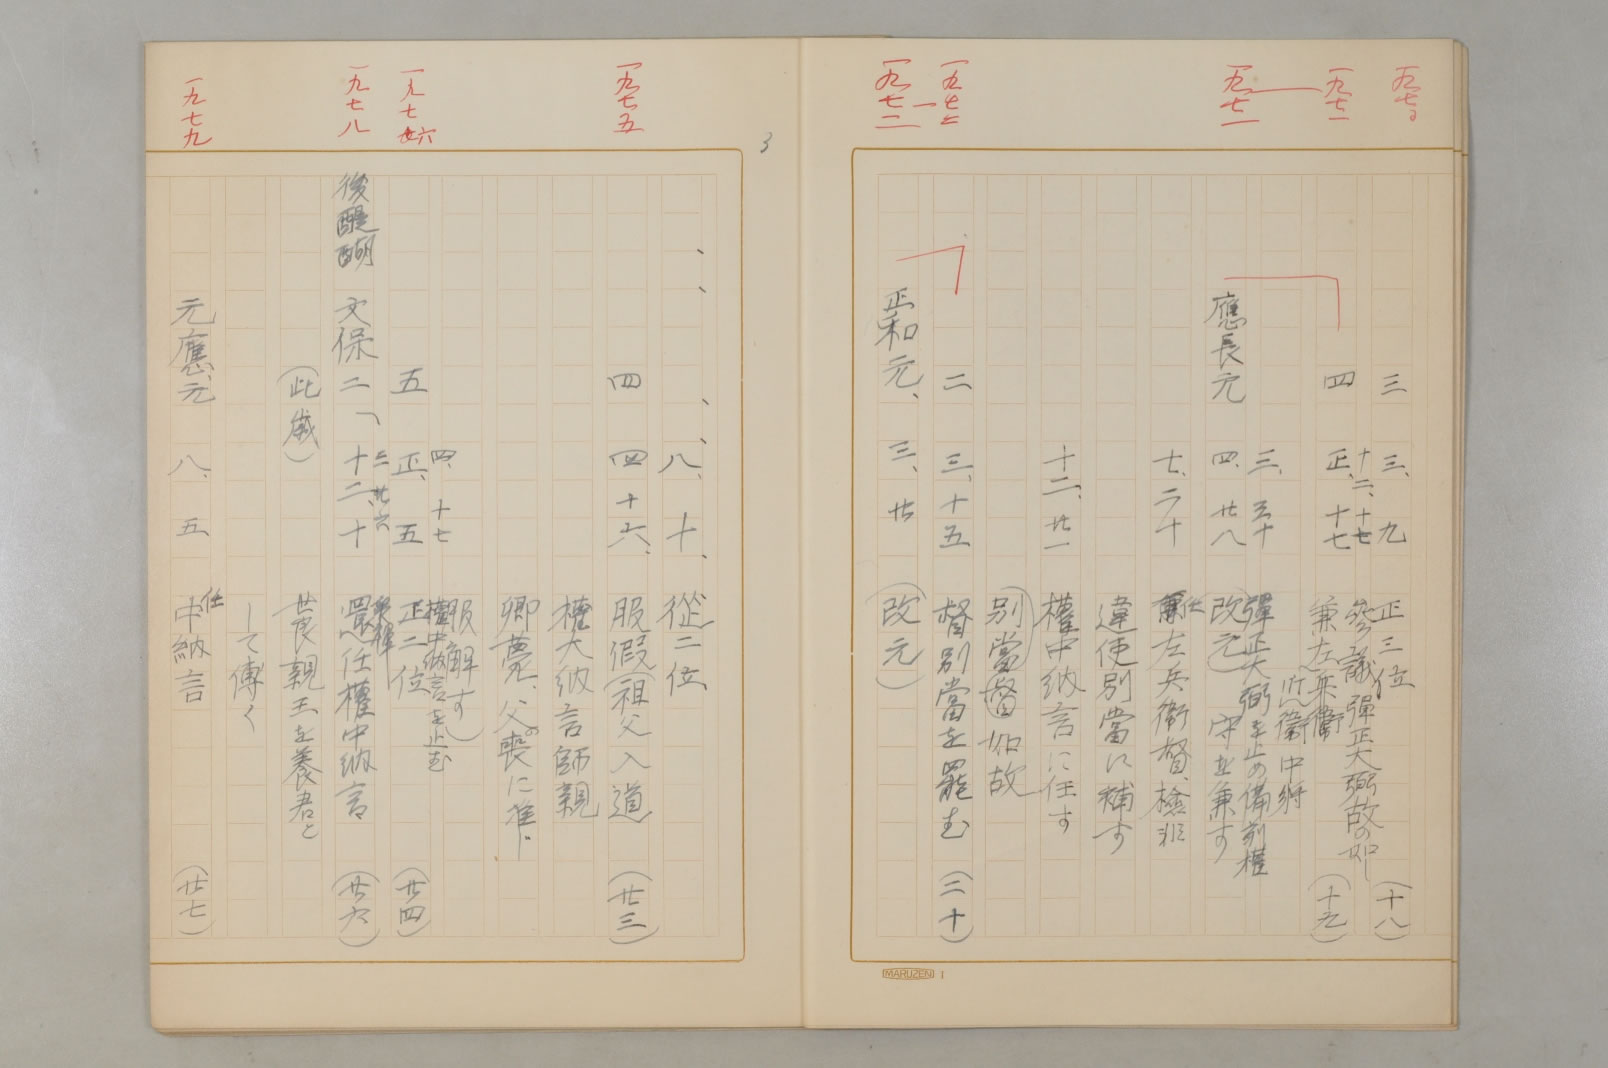 三 三、九 正三位 (十八)
十二、十七 参議 彈正大弼故の如し
四 正、十七 兼左兵衛 (十九)
近衛中將
三、三十 彈正大弼を止め備前權
應長元 四、廿八 改元 守を兼す
七、二十 任左兵衛督、檢非
違使別當に補す
十二、廿一 權中納言に任す
別當督如故
一九七二 二 三、十五 督別當を罷む (二十)
一九七二 正和元、三、廿 (改元)
3
八、十、 從二位
一九七五 四 四 十六、 服假(祖父入道 (廿三)
權大納言師親
卿薨、父の喪に准じ
服解す)
四、十七 權中納言を止む
一九七六 五 正、五 正二位 (廿四)
三、廿六
一九七八 後醍醐 文保二 十二、十 還任權中納言 (廿六)
(此歳) 世良親王を養君と
して傅く
一九七九 元應元 八、五 任中納言 (廿七)
MARUZEN 1